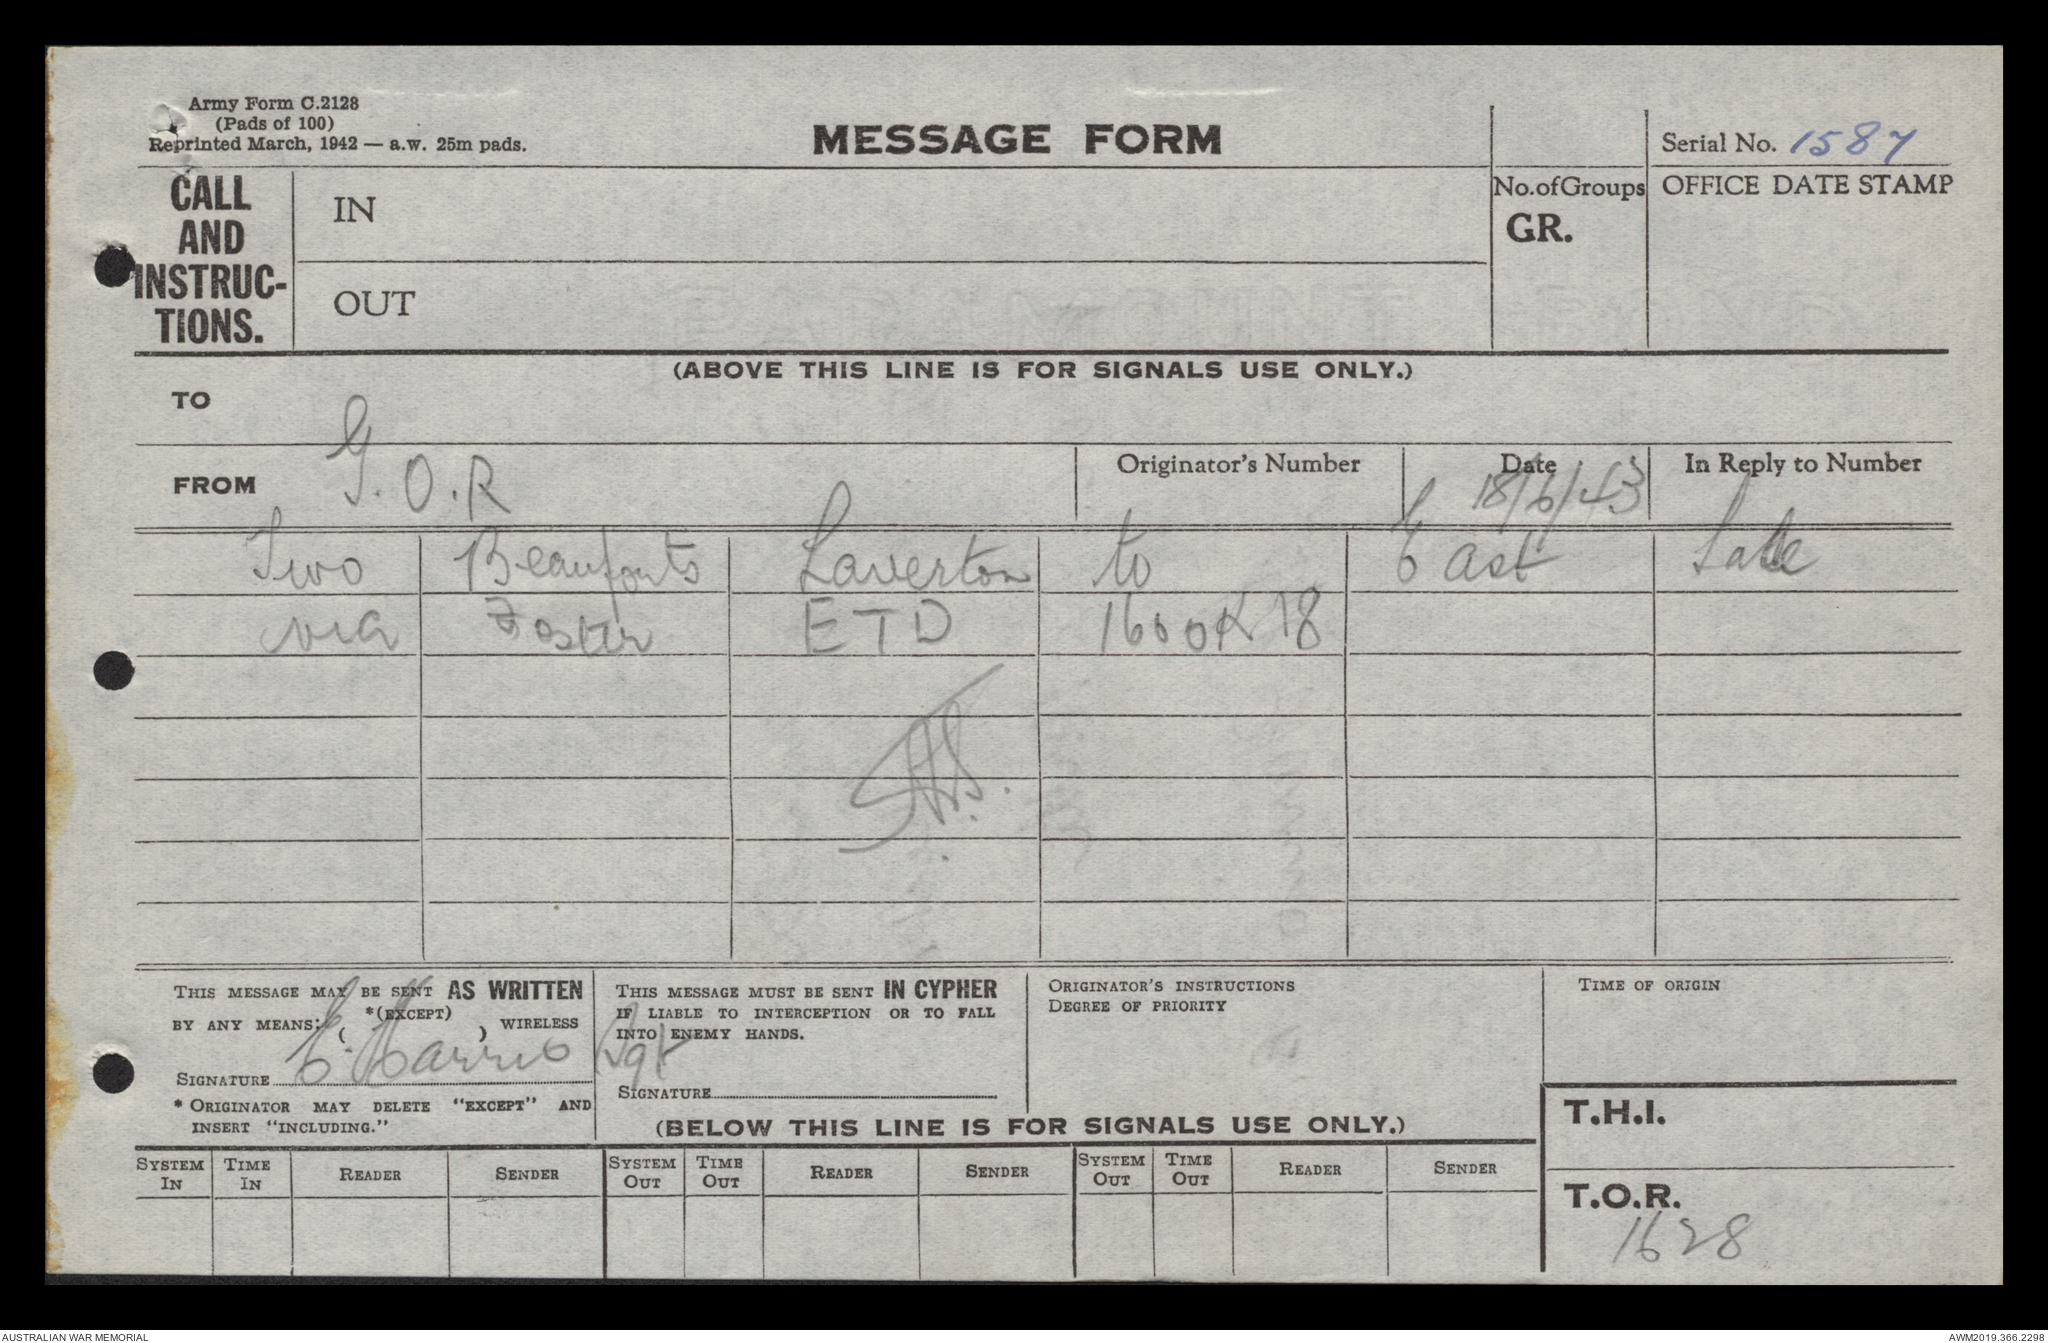 Army Form C.2128
(Pads of 100)
Reprinted March, 1942 — a.w. 25m pads.
MESSAGE FORM
Serial No. 1587
CALL
AND
INSTRUC-
TIONS.
IN
OUT
No. of Groups
GR.
OFFICE DATE STAMP
(ABOVE THIS LINE IS FOR SIGNALS USE ONLY.)
TO
FROM G.O.R
Originator's Number
Date 18/6/43
In Reply to Number
Two Beauforts Laverton to East Sale
via Foster ETD 1600K 18
THIS MESSAGE MAY BE SENT AS WRITTEN
BY ANY MEANS: *(EXCEPT) ( ) WIRELESS
SIGNATURE E. Harris Sgt
* ORIGINATOR MAY DELETE "EXCEPT" AND
INSERT "INCLUDING."
THIS MESSAGE MUST BE SENT IN CYPHER
IF LIABLE TO INTERCEPTION OR TO FALL
INTO ENEMY HANDS.
SIGNATURE
ORIGINATOR'S INSTRUCTIONS
DEGREE OF PRIORITY
TIME OF ORIGIN
(BELOW THIS LINE IS FOR SIGNALS USE ONLY.)
T.H.I.
SYSTEM IN TIME IN READER SENDER SYSTEM OUT TIME OUT READER SENDER SYSTEM OUT TIME OUT READER SENDER
T.O.R.
1628
AUSTRALIAN WAR MEMORIAL
AWM2019.366.2298